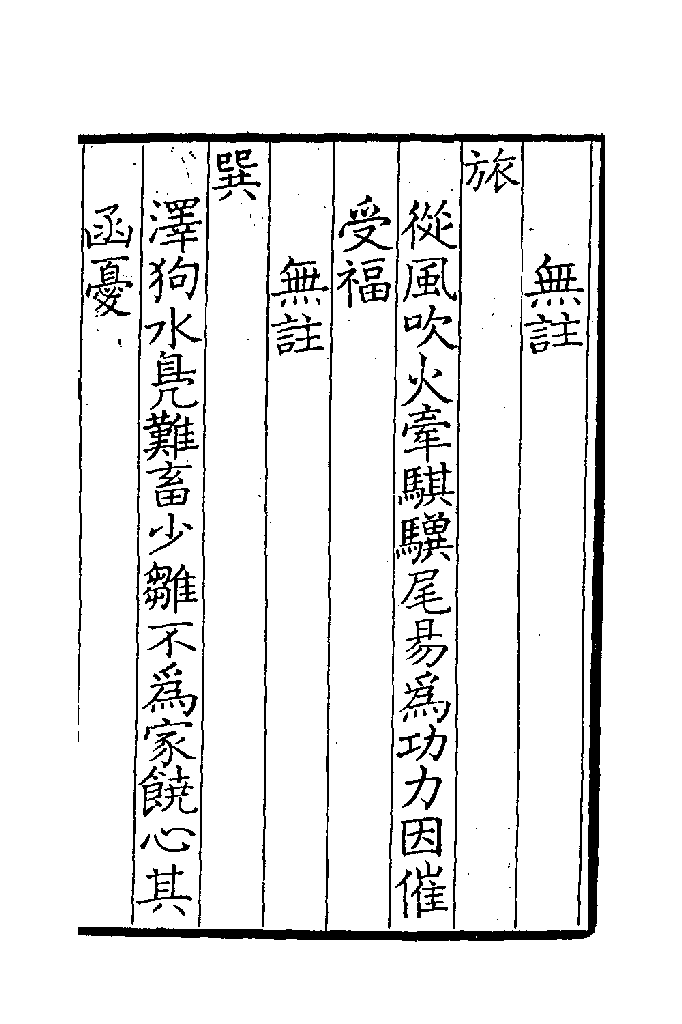 無註
旅
從風吹火牽騏驥尾易爲功力因催
受福
無註
巽
澤狗水鳧難畜少雛不爲家饒心其
函憂